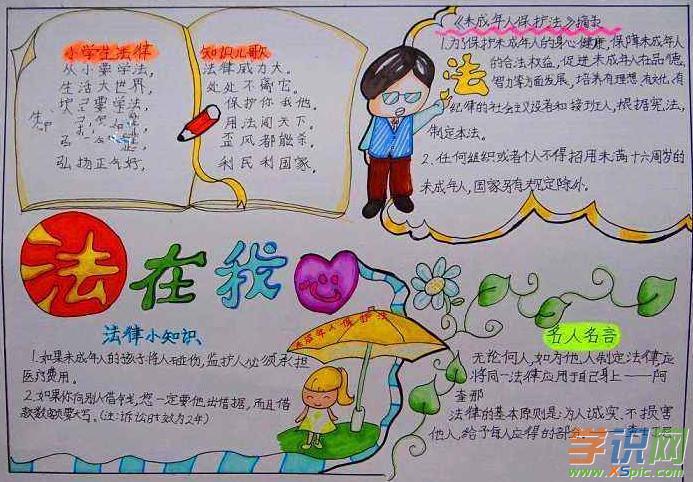 小学生法律
知识儿歌
从小要学法,
生活大世界,
坎己要学法,
弘扬正气好,
法律威力大。
处处不离它。
保护你我他,
用法闯天下。
歪风都能杀。
利民利国家.
《未成年人保护法》摘录
1.为了保护未成年人的身心健康,保障未成年人
的合法权益,促进未成年人在品德、
智力等方面发展,培养有理想、有文化、有
纪律的社会主义设者和接班人,根据宪法,
制定本法。
2.任何组织或者个人不得招用未满十六周岁的
未成年人,国家另有规定除外.
法
法在我心
法律小知识
1.如果未成年人的孩子将人砸伤,监护人必须承担
医疗费用。
2.如果你向别人借钱,您一定要他出借据,而且借
款数额要大写。(注:诉讼时效为2年)
未成年人保护法
名人名言
无论何人,如为他人制定法律,应
将同一法律应用于自己身上——阿
奎那
法律的基本原则是:为人诚实,不损害
他人,给予每人应得的部
学识网
www.XSpic.com